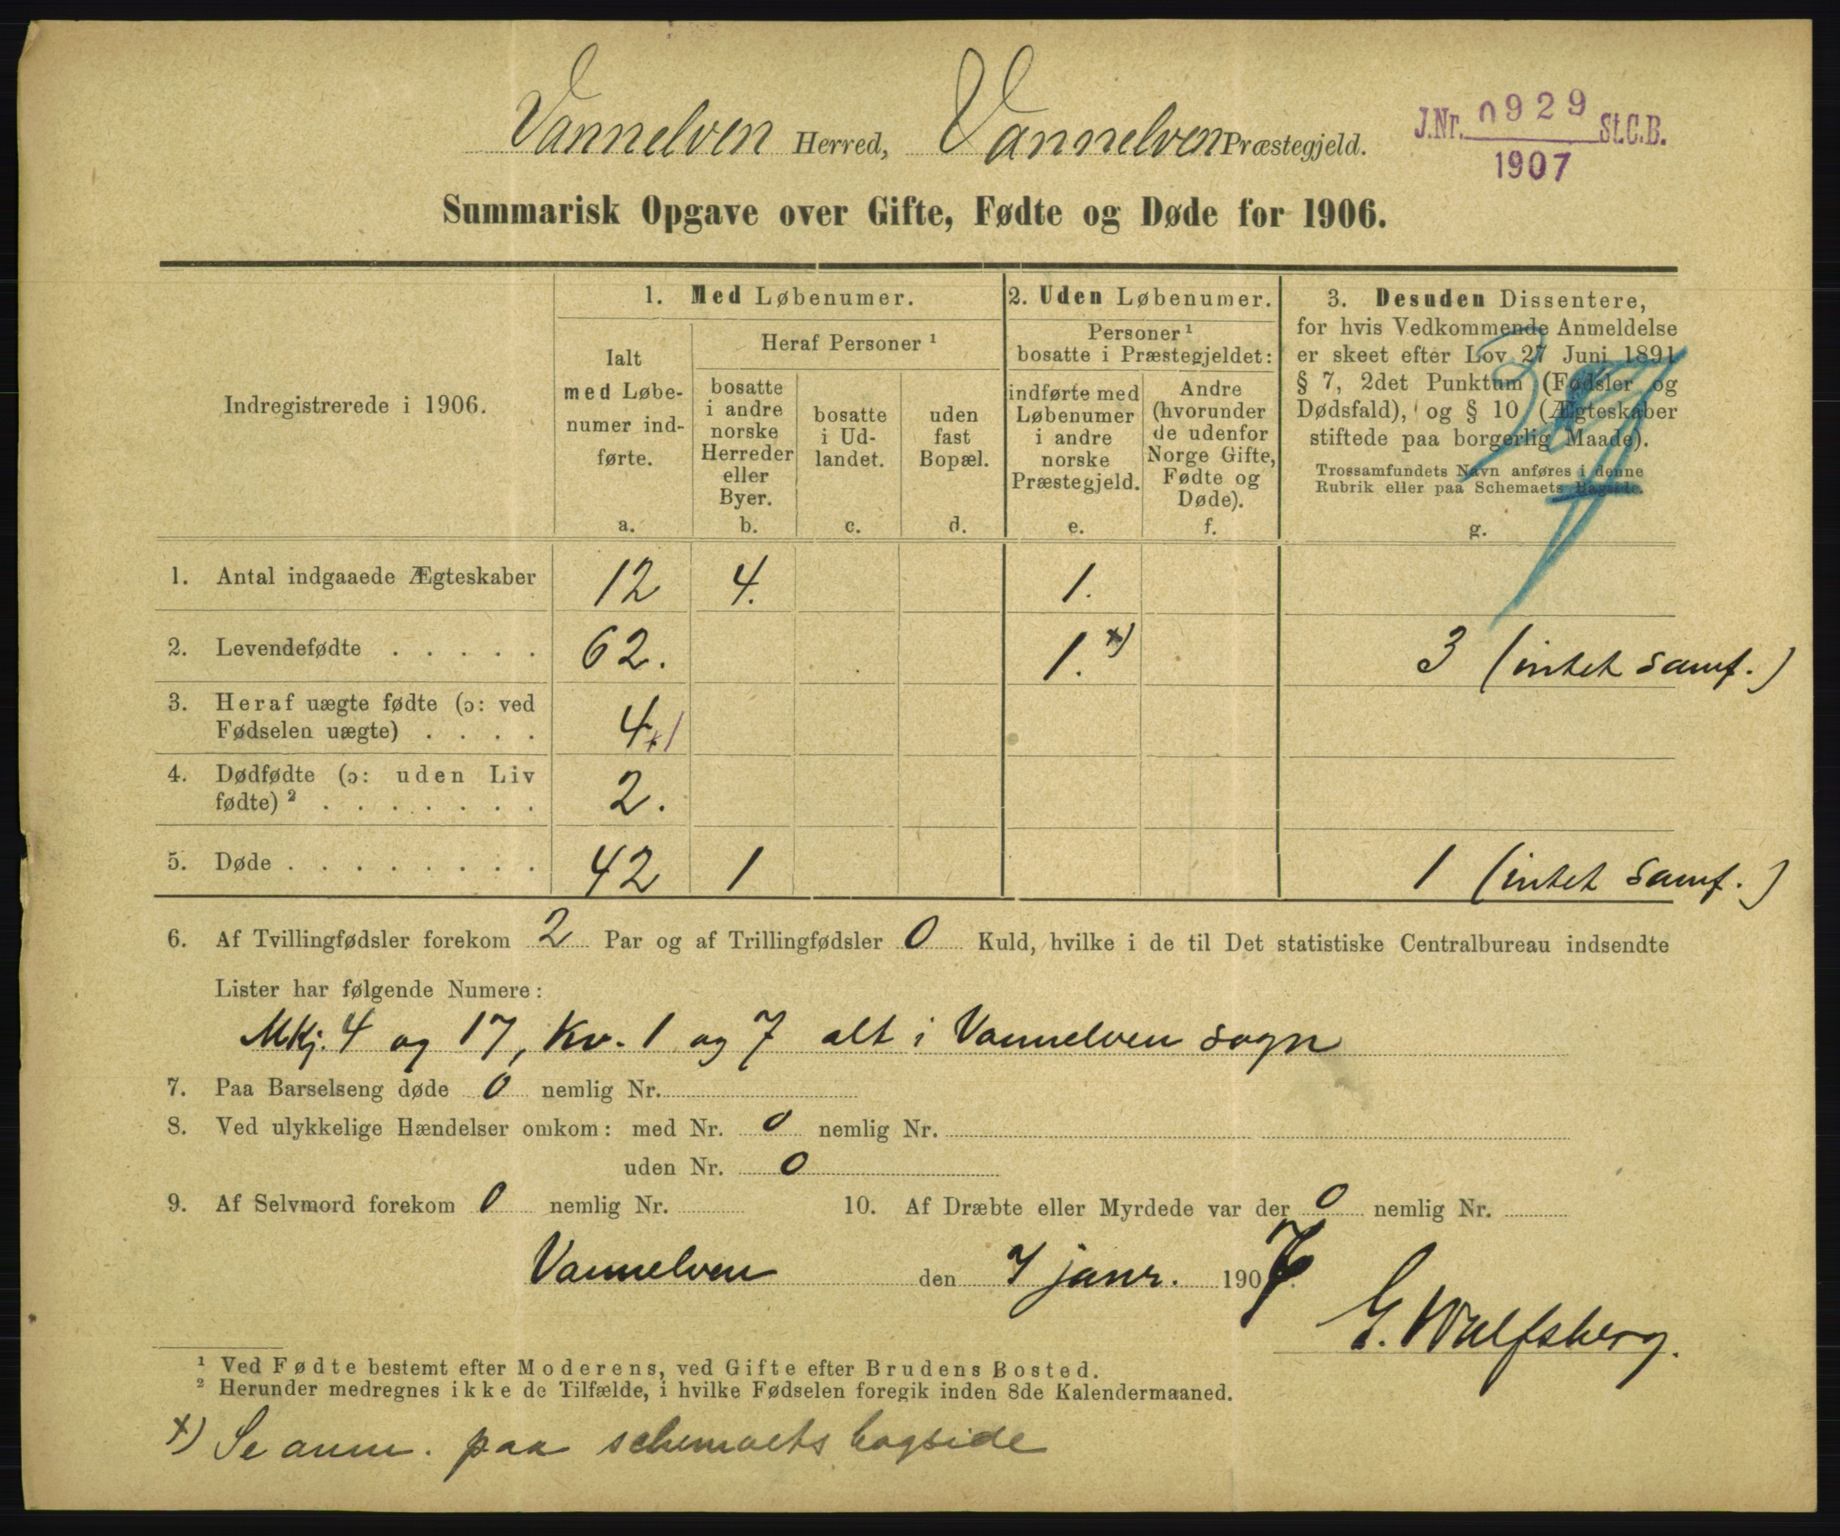 Vannelven Herred, Vannelven Præstegjeld.
J.Nr. 0929 St.C.B.
1907
Summarisk Opgave over Gifte, Fødte og Døde for 1906.
Indregistrerede i 1906.
1. Med Løbenumer.
Ialt
med Løbe-
numer ind-
førte.
a.
Heraf Personer ¹
bosatte
i andre
norske
Herreder
eller
Byer.
b.
bosatte
i Ud-
landet.
c.
uden
fast
Bopæl.
d.
2. Uden Løbenumer.
Personer ¹
bosatte i Præstegjeldet:
indførte med
Løbenumer
i andre
norske
Præstegjeld.
e.
Andre
(hvorunder
de udenfor
Norge Gifte,
Fødte og
Døde).
f.
3. Desuden Dissentere,
for hvis Vedkommende Anmeldelse
er skeet efter Lov 27 Juni 1891
§ 7, 2det Punktum (Fødsler og
Dødsfald), og § 10 (Ægteskaber
stiftede paa borgerlig Maade).
Trossamfundets Navn anføres i denne
Rubrik eller paa Schemaets Bagside.
g.
1. Antal indgaaede Ægteskaber 12 4. 1.
2. Levendefødte . . . . . 62. 1. x) 3 (intet samf.)
3. Heraf uægte fødte (ɔ: ved
Fødselen uægte) . . . . 4+1
4. Dødfødte (ɔ: uden Liv
fødte) ² . . . . . . . 2.
5. Døde . . . . . . . . 42 1 1 (intet samf.)
6. Af Tvillingfødsler forekom 2 Par og af Trillingfødsler 0 Kuld, hvilke i de til Det statistiske Centralbureau indsendte
Lister har følgende Numere:
Mkj. 4 og 17, Kv. 1 og 7 alt i Vannelven sogn
7. Paa Barselseng døde 0 nemlig Nr.
8. Ved ulykkelige Hændelser omkom: med Nr. 0 nemlig Nr.
uden Nr. 0
9. Af Selvmord forekom 0 nemlig Nr. 10. Af Dræbte eller Myrdede var der 0 nemlig Nr.
Vannelven den 7 janr. 1907.
E. Wulfsberg.
¹ Ved Fødte bestemt efter Moderens, ved Gifte efter Brudens Bosted.
² Herunder medregnes ikke de Tilfælde, i hvilke Fødselen foregik inden 8de Kalendermaaned.
x) Se anm. paa schemaets bagside